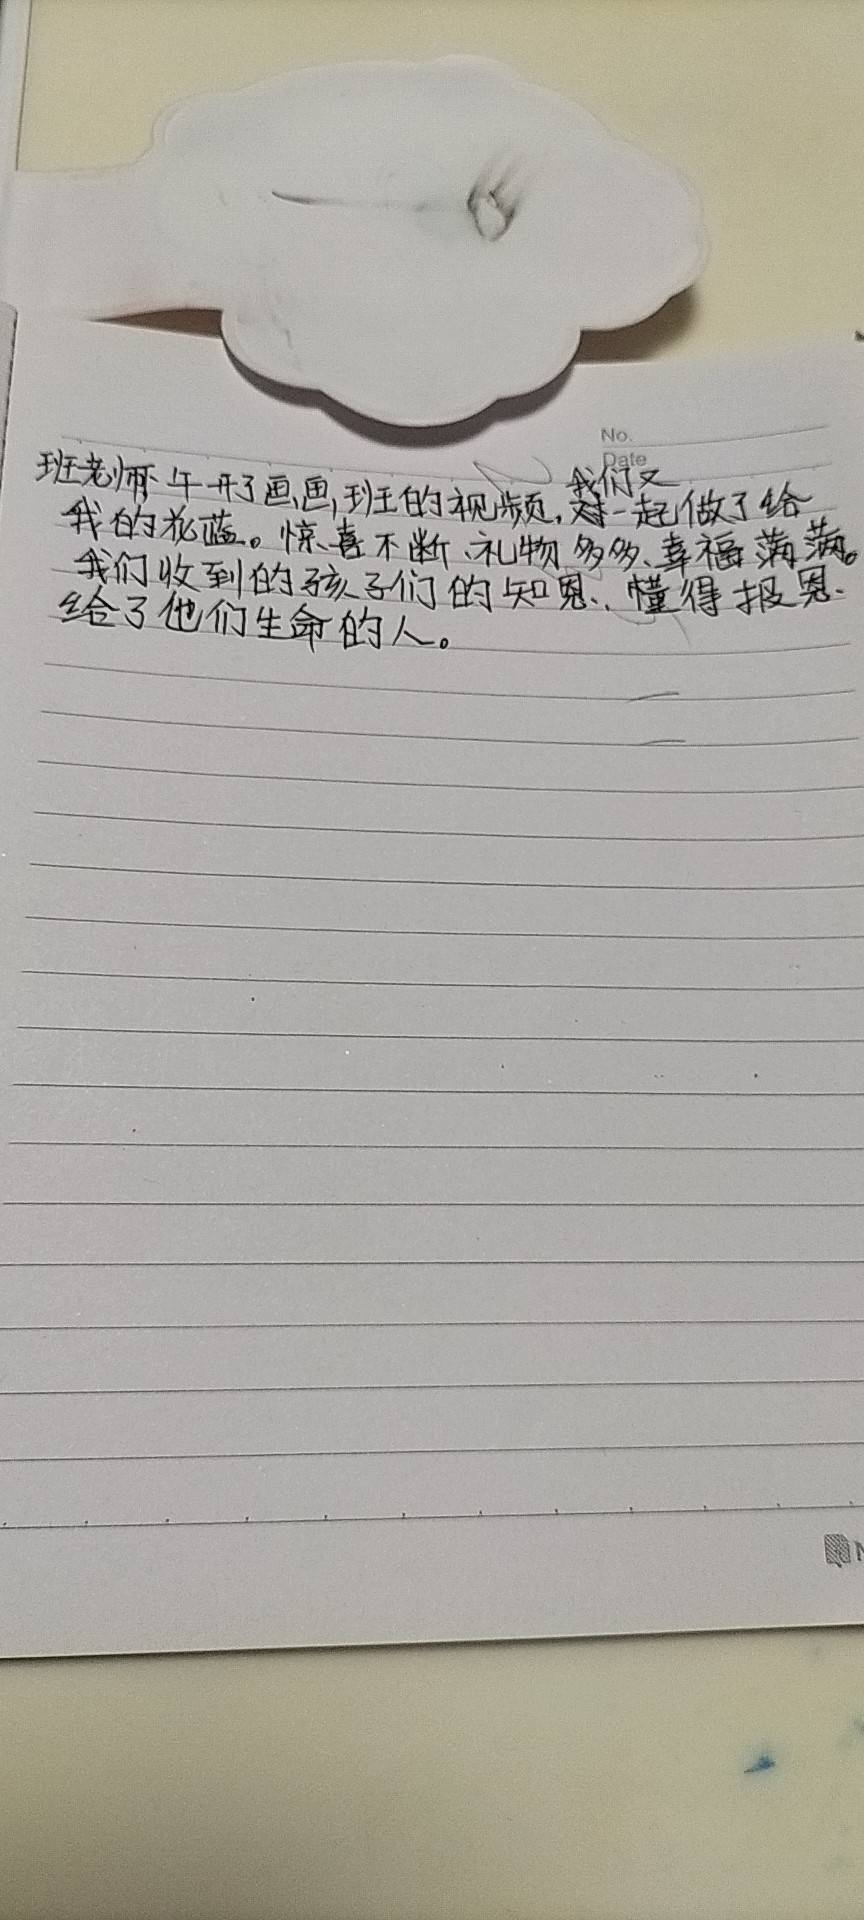 No.
Date
我们又
班老师下午开了画画班的视频,一起做了给
我的花蓝。惊喜不断、礼物多多、幸福满满。
我们收到的孩子们的知恩、懂得报恩.
给了他们生命的人。